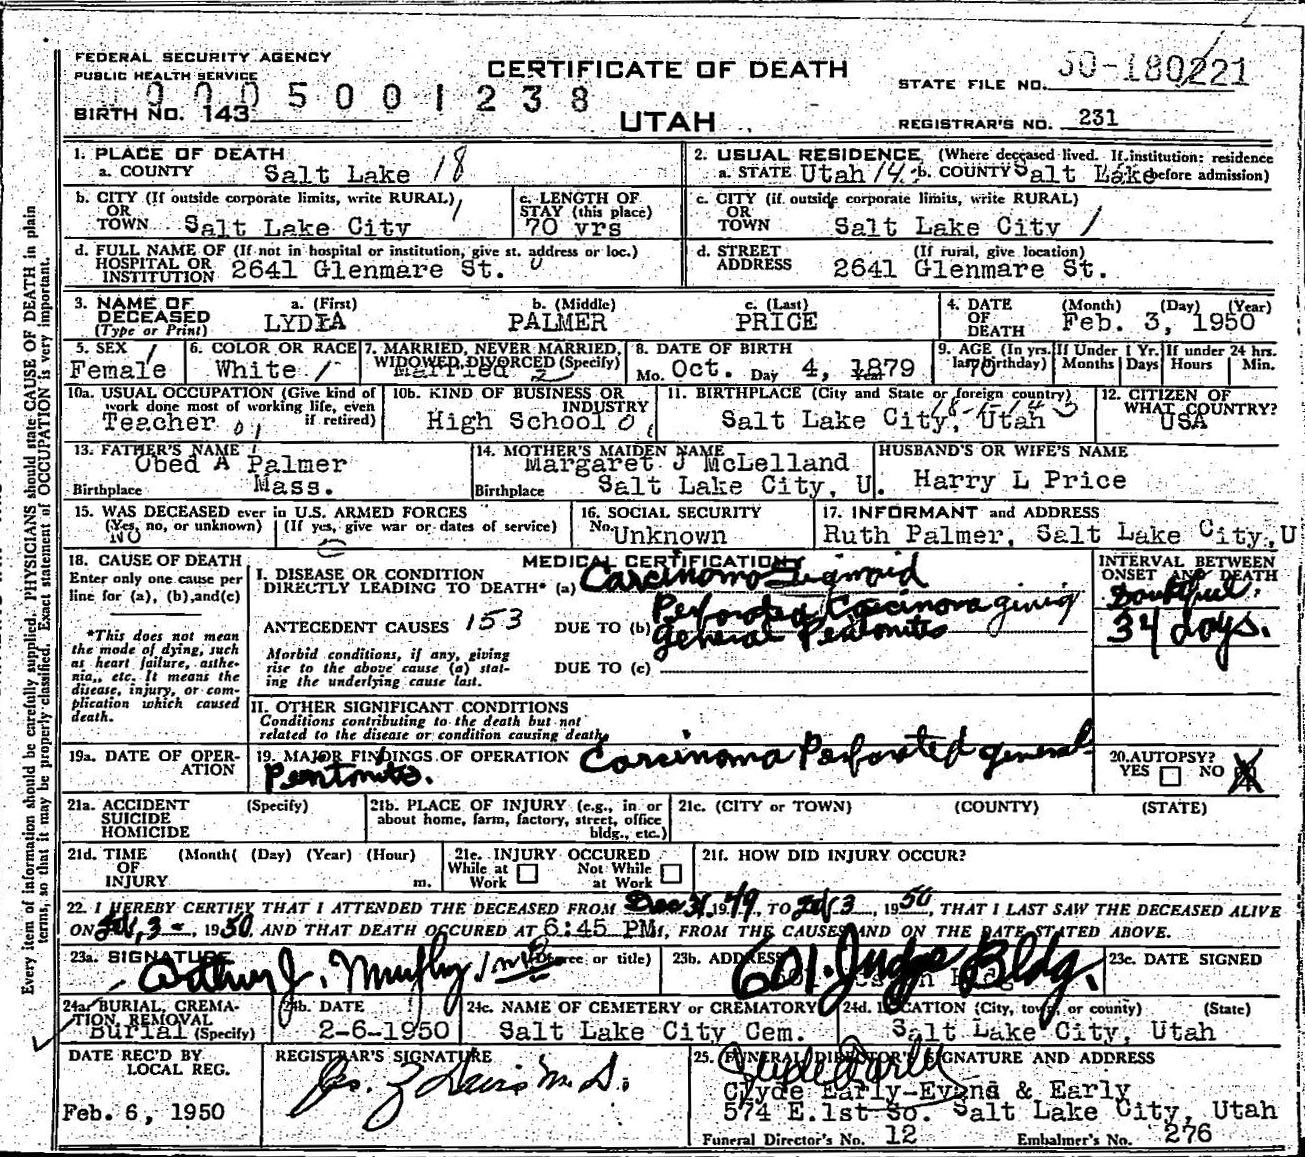 FEDERAL SECURITY AGENCY
PUBLIC HEALTH SERVICE
CERTIFICATE OF DEATH
STATE FILE NO. 50-180221
5 0 0 1 2 3 8
BIRTH NO. 143
UTAH
REGISTRAR'S NO. 231
Every item of information should be carefully supplied. PHYSICIANS should state CAUSE OF DEATH in plain
terms, so that it may be properly classified. Exact statement of OCCUPATION is very important.
1. PLACE OF DEATH
a. COUNTY Salt Lake 18
2. USUAL RESIDENCE (Where deceased lived. If institution: residence
a. STATE Utah 14 b. COUNTY Salt Lake before admission)
b. CITY (If outside corporate limits, write RURAL)
OR
TOWN Salt Lake City 1
c. LENGTH OF
STAY (this place)
70 yrs
c. CITY (if outside corporate limits, write RURAL)
OR
TOWN Salt Lake City 1
d. FULL NAME OF (If not in hospital or institution, give st. address or loc.)
HOSPITAL OR
INSTITUTION 2641 Glenmare St. 0
d. STREET (If rural, give location)
ADDRESS 2641 Glenmare St.
3. NAME OF
DECEASED
(Type or Print)
a. (First) b. (Middle) c. (Last)
LYDIA PALMER PRICE
4. DATE
OF
DEATH
(Month) (Day) (Year)
Feb. 3, 1950
5. SEX 1
Female
6. COLOR OR RACE
White 1
7. MARRIED, NEVER MARRIED,
WIDOWED DIVORCED (Specify)
Married 2
8. DATE OF BIRTH
Mo. Oct. Day 4, Year 1879
9. AGE (In yrs.
last birthday)
70
If Under 1 Yr.
Months Days
If under 24 hrs.
Hours Min.
10a. USUAL OCCUPATION (Give kind of
work done most of working life, even
if retired)
Teacher 01
10b. KIND OF BUSINESS OR
INDUSTRY
High School 0
11. BIRTHPLACE (City and State or foreign country)
Salt Lake City, Utah
12. CITIZEN OF
WHAT COUNTRY?
USA
13. FATHER'S NAME
Obed A Palmer
Birthplace Mass.
14. MOTHER'S MAIDEN NAME
Margaret J McLelland
Birthplace Salt Lake City, U.
HUSBAND'S OR WIFE'S NAME
Harry L Price
15. WAS DECEASED ever in U.S. ARMED FORCES
(Yes, no, or unknown) (If yes, give war or dates of service)
No 0
16. SOCIAL SECURITY
No. Unknown
17. INFORMANT and ADDRESS
Ruth Palmer, Salt Lake City, U
18. CAUSE OF DEATH
Enter only one cause per
line for (a), (b), and (c)
*This does not mean
the mode of dying, such
as heart failure, asthe-
nia,, etc. It means the
disease, injury, or com-
plication which caused
death.
MEDICAL CERTIFICATION
I. DISEASE OR CONDITION
DIRECTLY LEADING TO DEATH* (a) Carcinoma Sigmoid
ANTECEDENT CAUSES 153 DUE TO (b) Perforated Carcinoma giving
general Peritonitis
Morbid conditions, if any, giving
rise to the above cause (a) stat-
ing the underlying cause last.
DUE TO (c)
INTERVAL BETWEEN
ONSET AND DEATH
Doubtful.
34 days.
II. OTHER SIGNIFICANT CONDITIONS
Conditions contributing to the death but not
related to the disease or condition causing death.
19a. DATE OF OPER-
ATION
19. MAJOR FINDINGS OF OPERATION Carcinoma Perforated general
Peritonitis.
20. AUTOPSY?
YES NO X
21a. ACCIDENT (Specify)
SUICIDE
HOMICIDE
21b. PLACE OF INJURY (e.g., in or
about home, farm, factory, street, office
bldg., etc.)
21c. (CITY or TOWN) (COUNTY) (STATE)
21d. TIME (Month( (Day) (Year) (Hour)
OF
INJURY m.
21e. INJURY OCCURED
While at Work Not While at Work
21f. HOW DID INJURY OCCUR?
22. I HEREBY CERTIFY THAT I ATTENDED THE DECEASED FROM Dec 31, 1949, TO Feb 3, 1950, THAT I LAST SAW THE DECEASED ALIVE
ON Feb, 3 -, 1950 AND THAT DEATH OCCURED AT 6:45 PM, FROM THE CAUSES AND ON THE DATE STATED ABOVE.
23a. SIGNATURE (Degree or title)
Arthur J. Murphy M.D.
23b. ADDRESS
601 Judge Bldg.
23c. DATE SIGNED
24a. BURIAL, CREMA-
TION, REMOVAL
Burial (Specify)
24b. DATE
2-6-1950
24c. NAME OF CEMETERY OR CREMATORY
Salt Lake City Cem.
24d. LOCATION (City, town, or county) (State)
Salt Lake City, Utah
DATE REC'D BY
LOCAL REG.
Feb. 6, 1950
REGISTRAR'S SIGNATURE
25. FUNERAL DIRECTOR'S SIGNATURE AND ADDRESS
Clyde Early
Clyde Early-Evans & Early
574 E. 1st So. Salt Lake City, Utah
Funeral Director's No. 12 Embalmer's No. 276